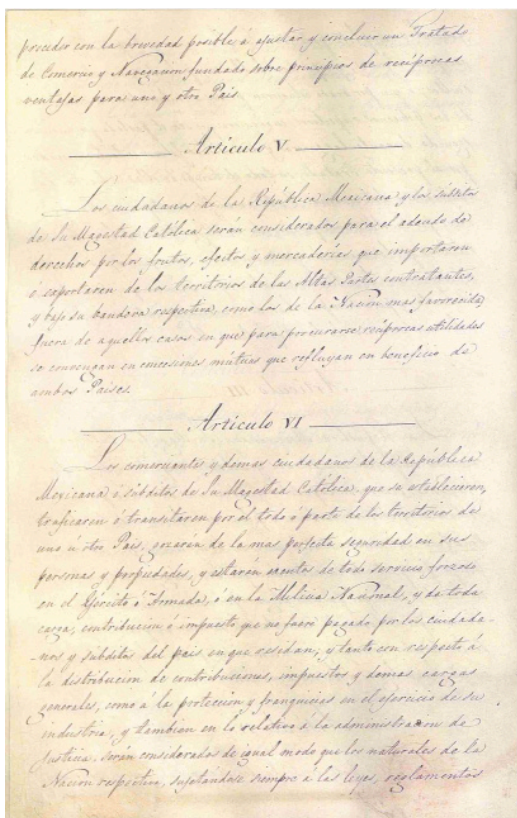 proceder con la brevedad posible á ajustar y concluir un Tratado
de Comercio y Navegacion fundado sobre principios de recíprocas
ventajas para uno y otro Pais.
Artículo V
Los ciudadanos de la República Mexicana y los súbditos
de Su Magestad Católica serán considerados para el adeudo de
derechos por los frutos, efectos y mercaderías que importaren
ó exportaren de los territorios de las Altas Partes contratantes,
y bajo su bandera respectiva, como los de la Nacion mas favorecida,
fuera de aquellos casos en que para procurarse recíprocas utilidades
se convengan en concesiones mútuas que refluyan en beneficio de
ambos Paises.
Artículo VI
Los comerciantes y demas ciudadanos de la República
Mexicana ó súbditos de Su Magestad Católica, que se establecieren,
traficaren ó transitaren por el todo ó parte de los territorios de
uno ú otro Pais, gozarán de la mas perfecta seguridad en sus
personas y propiedades, y estarán exentos de todo servicio forzoso
en el Ejército ó Armada, ó en la Milicia Nacional, y de toda
carga, contribucion ó impuesto que no fuere pagado por los ciudada-
-nos y súbditos del pais en que residan; y tanto con respecto á
la distribucion de contribuciones, impuestos y demas cargas
generales, como á la proteccion y franquicias en el ejercicio de su
industria, y tambien en lo relativo á la administracion de
Justicia, serán considerados de igual modo que los naturales de la
Nacion respectiva, sujetandose siempre á las leyes, reglamentos